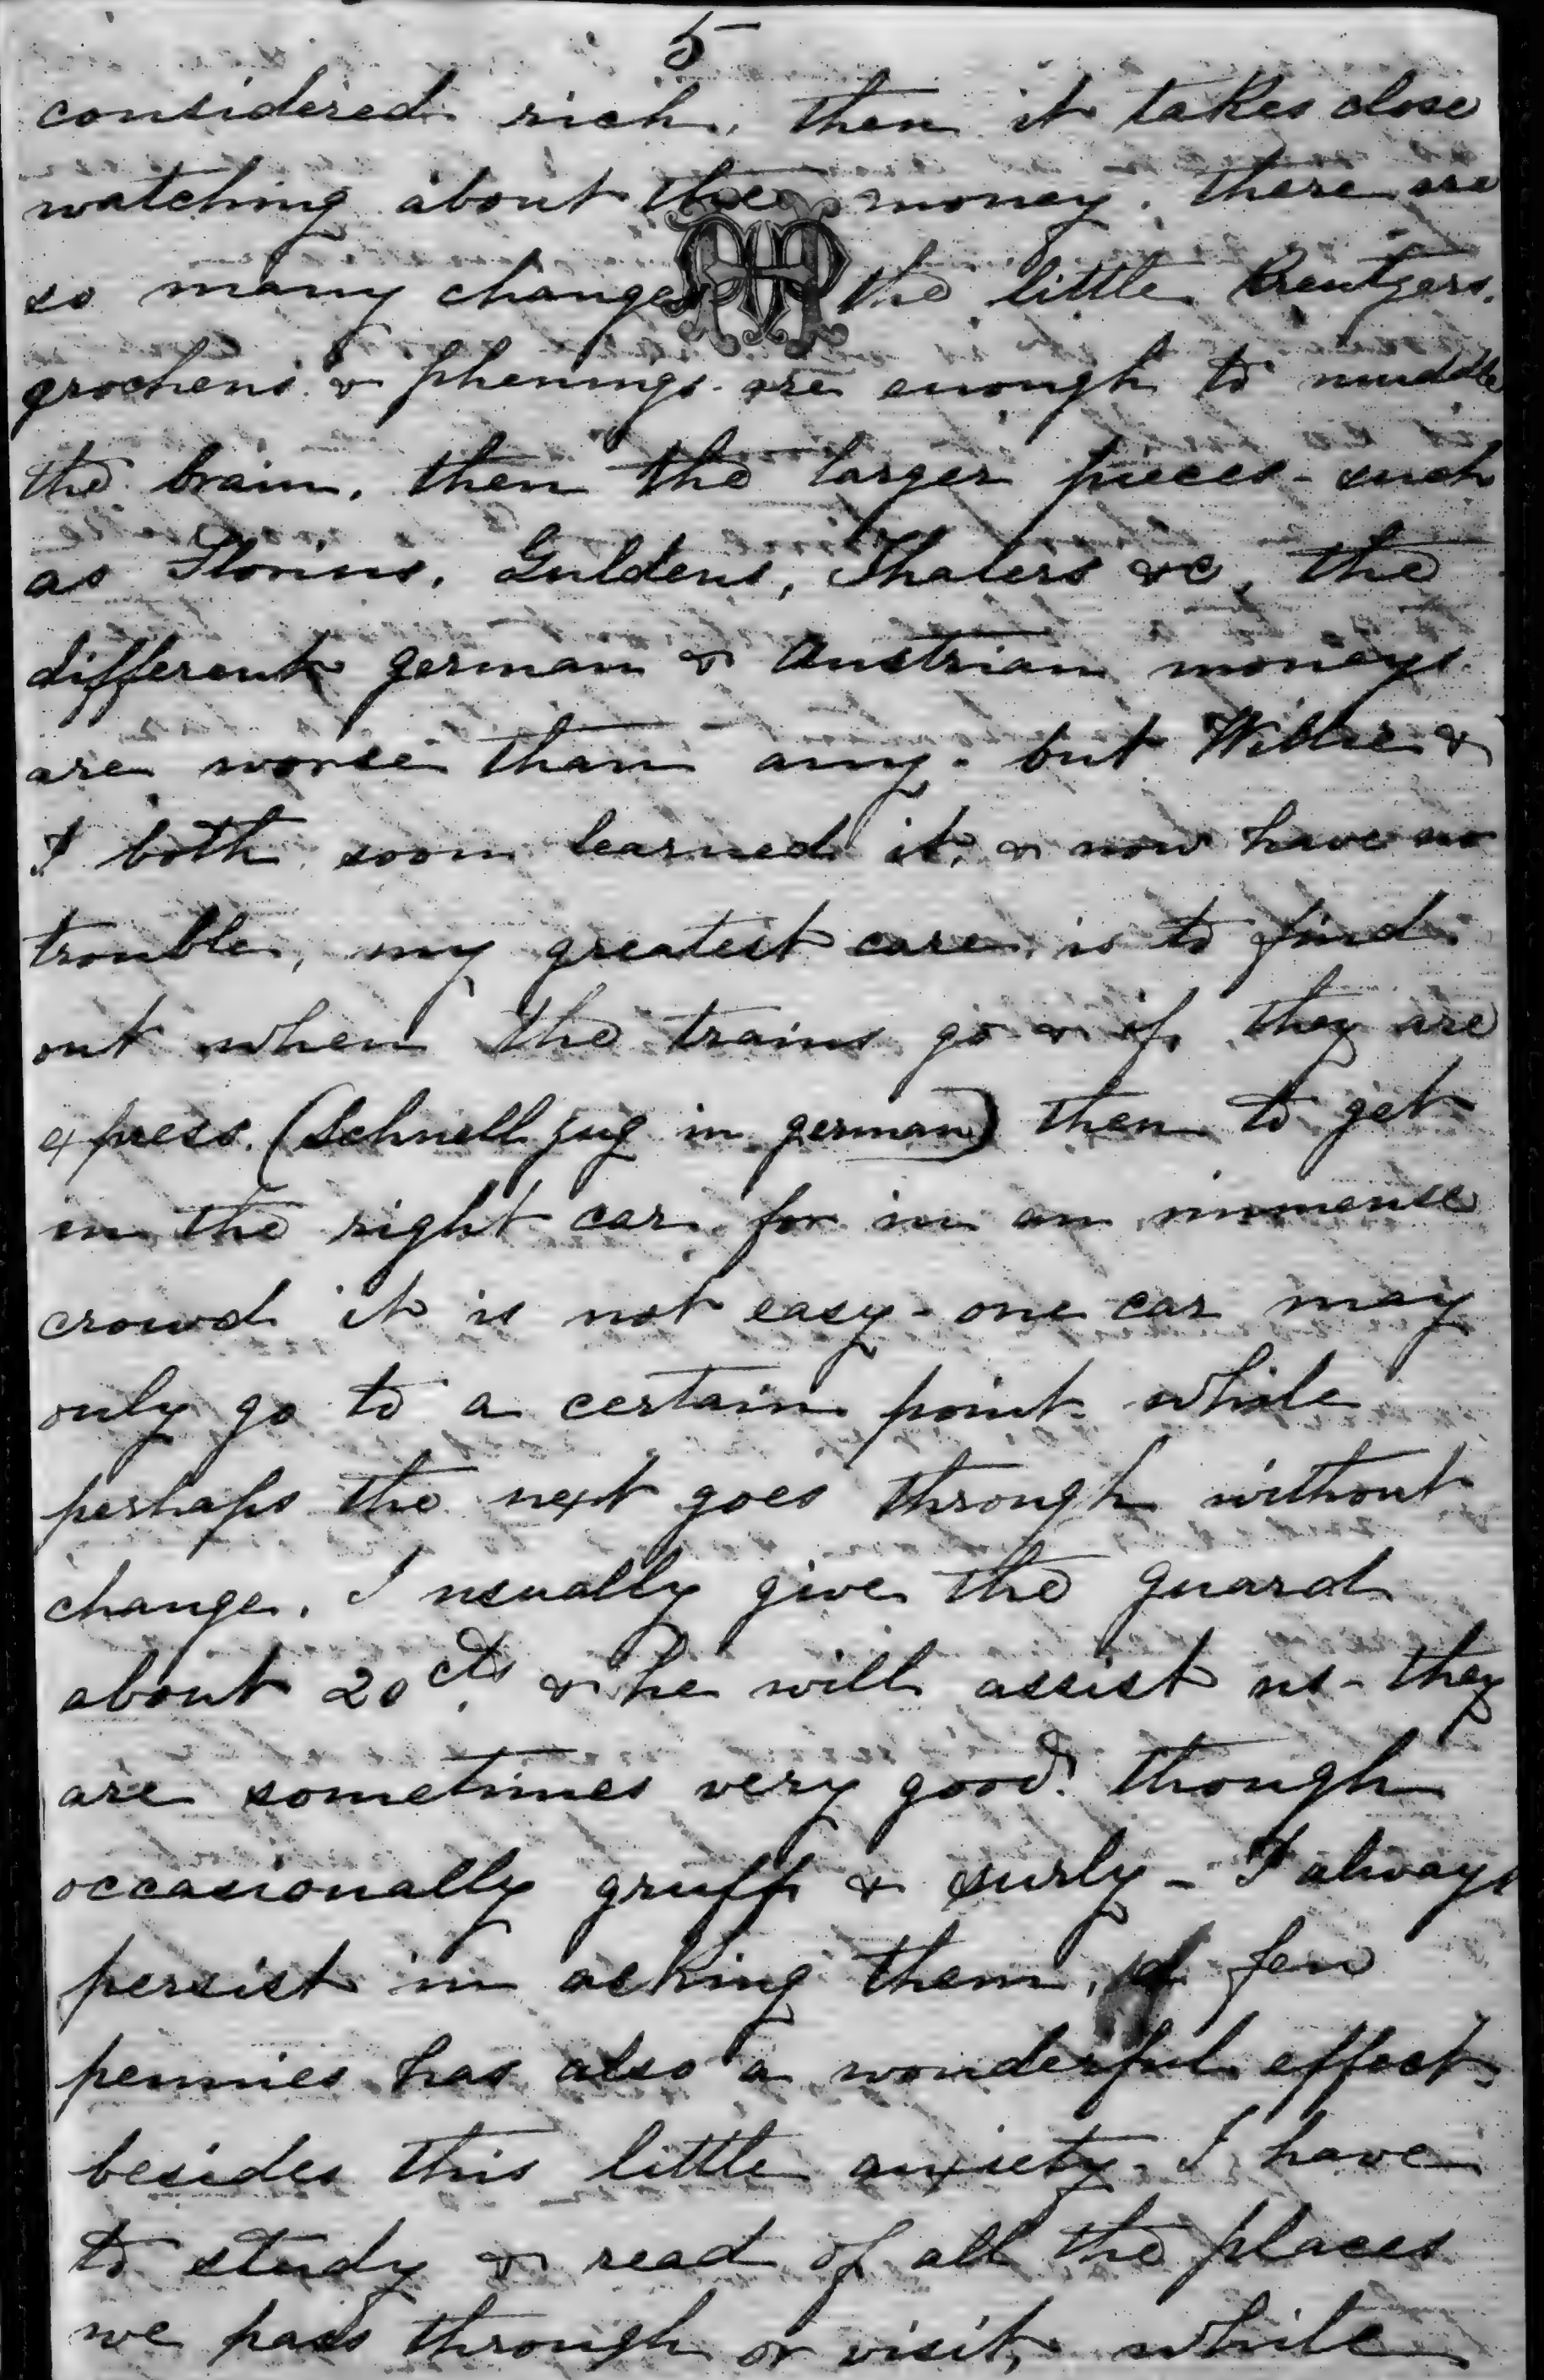 5
considered rich, then it takes close
watching about the money. there are
so many changes the little Kreutzers.
grochens & phenings are enough to muddle
the brain, then the larger pieces - such
as Florins, Guldens, Thalers &c, the
different german & Austrian moneys
are worse than any - but Willie &
I both soon learned it, & now have no
trouble, my greatest care, is to find
out when the trains go & if they are
express. (Schnell zug in german) then to get
in the right car, for in an immense
crowd it is not easy - one car may
only go to a certain point while
perhaps the next goes through without
change. I usually give the guard
about 20 cts & he will assist us - they
are sometimes very good though
occasionally gruff & surly - I always
persist in asking them, a few
pennies has also a wonderful effect,
besides this little anxiety - I have
to study & read of all the places
we pass through or visit, while